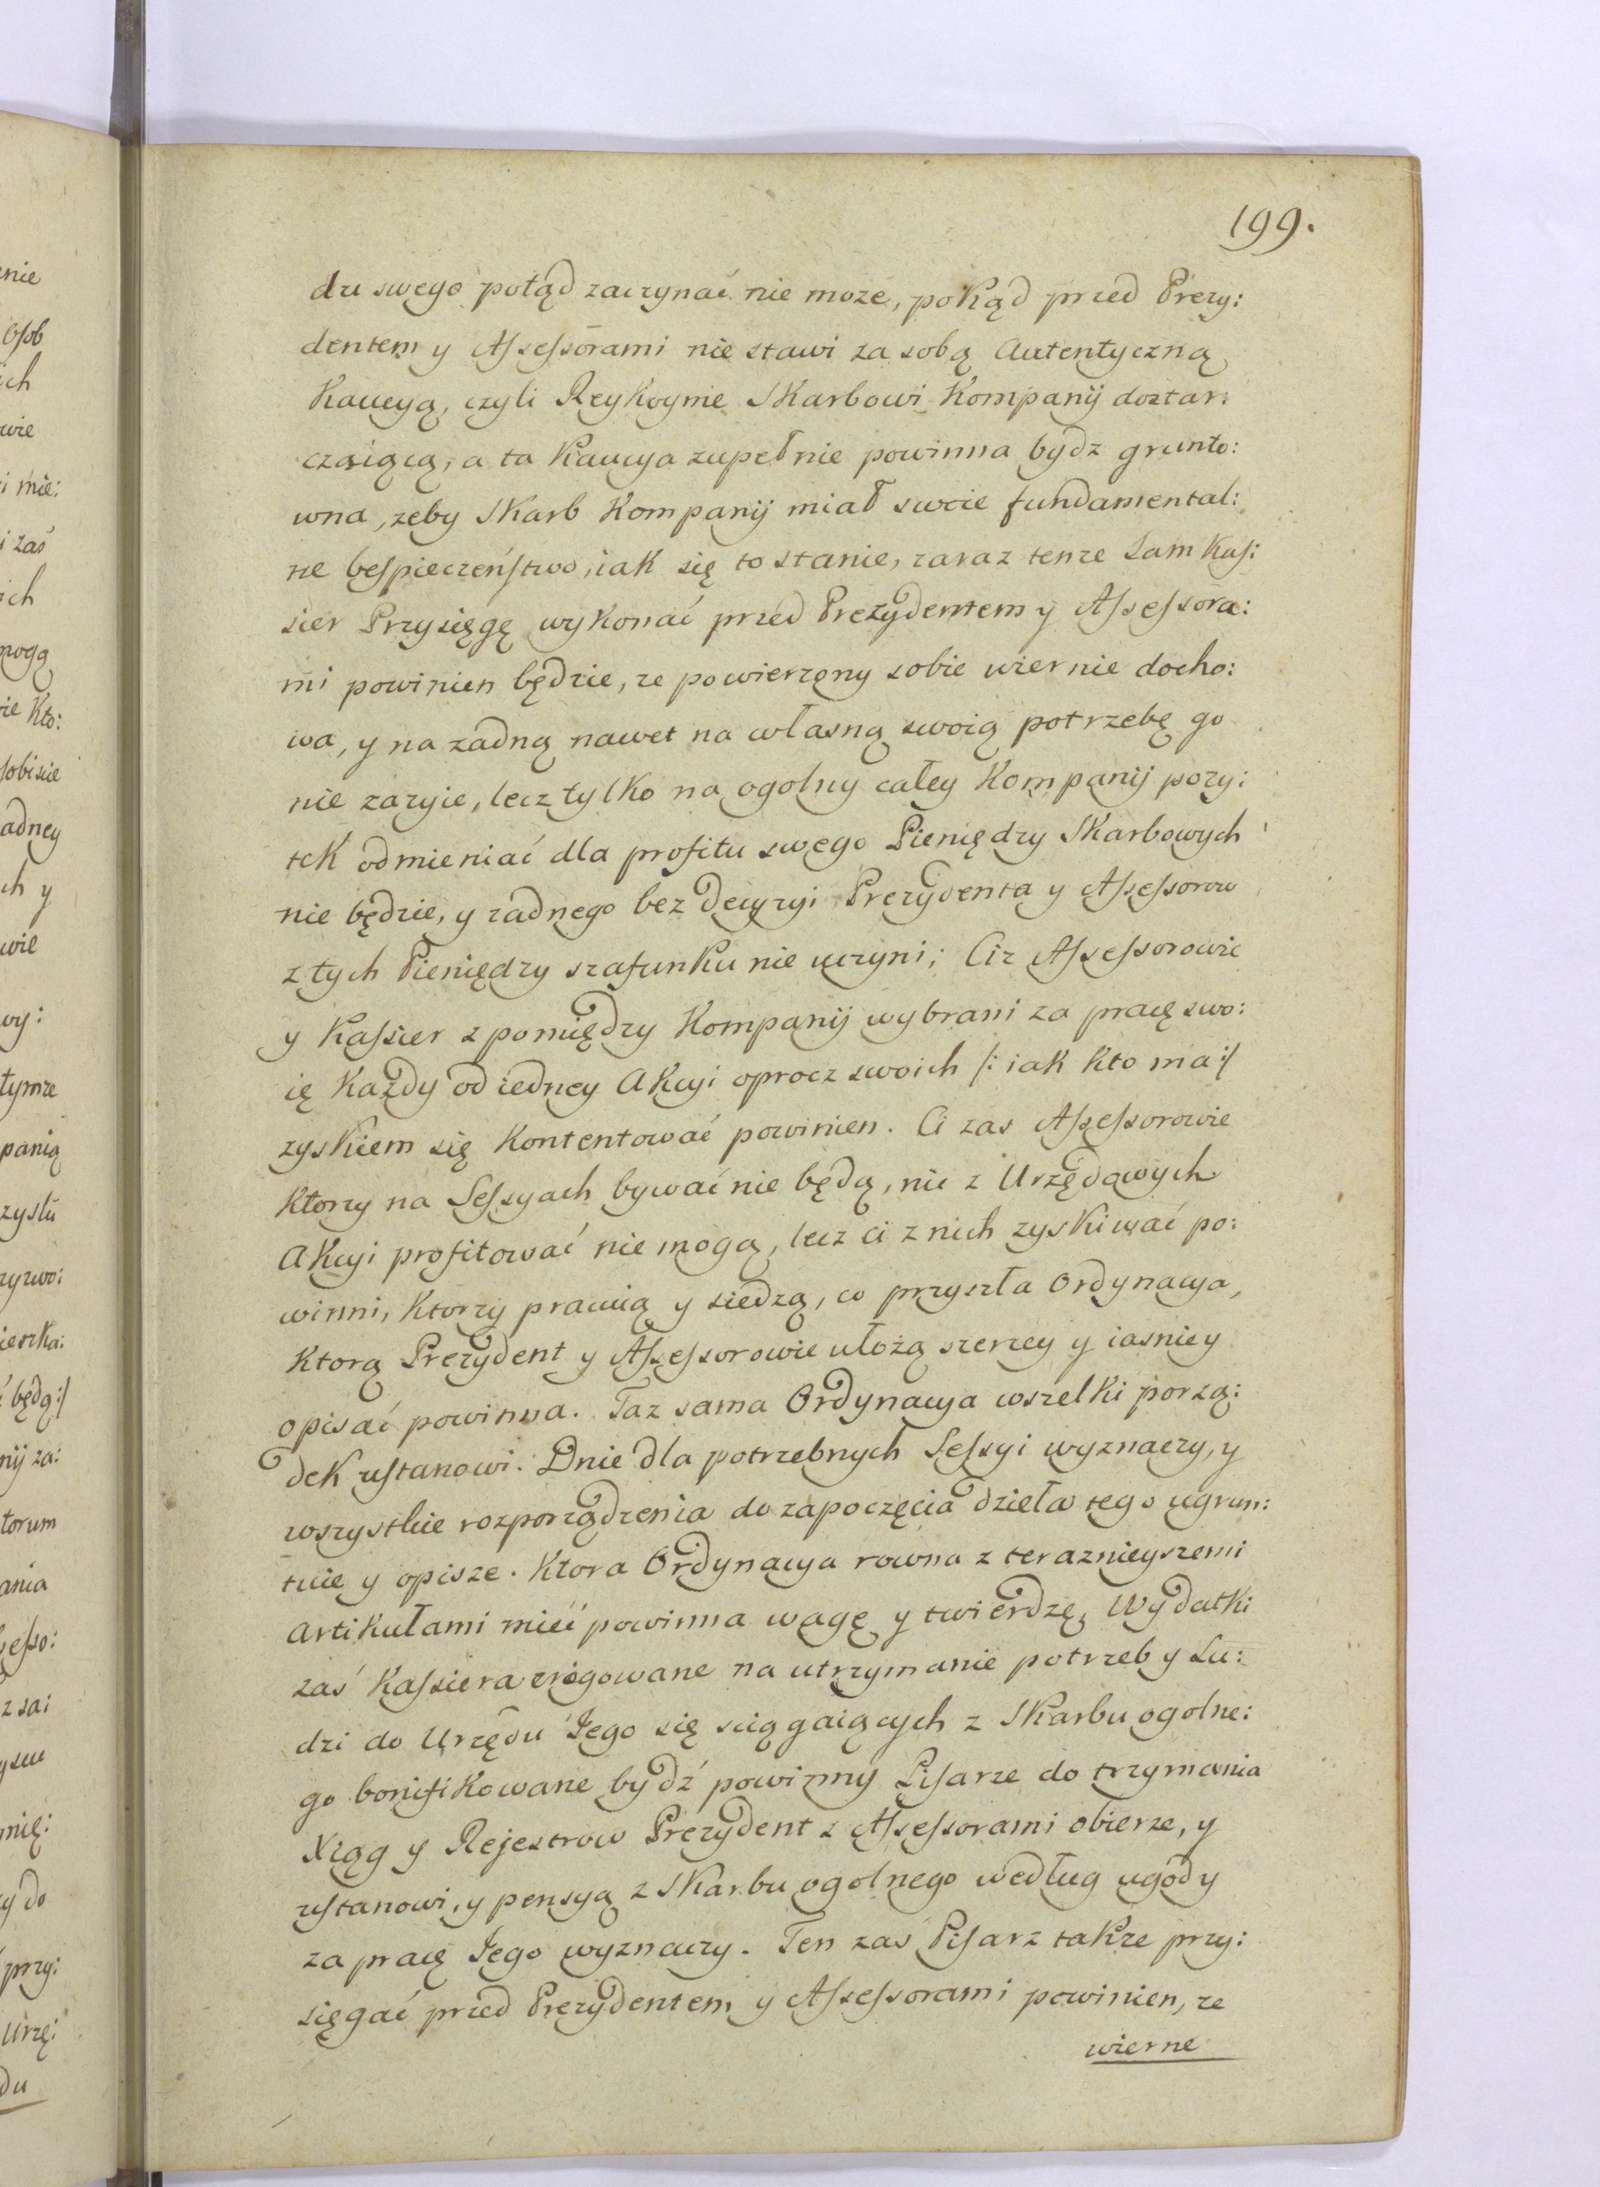 199.
du swego potąd zaczynać nie moze, pokąd przed Prezy:
dentem y Assessorami nie stawi za sobą Autentyczną
Kaucyą, czyli Reykoymie Skarbowi Kompanij doztar:
czaiącą, a ta Kaucya zupełnie powinna bydz grunto:
wna, zeby Skarb Kompanij miał swoie fundamental:
ne bespieczeństwo, iak się to stanie, zaraz tenze Sam Kas:
sier Przysięgę wykonać przed Prezydentem y Assessora:
mi powinien będzie, ze powierzony sobie wiernie docho:
wa, y na zadną nawet na własną swoią potrzebę go
nie zazyie, lecz tylko na ogolny całey Kompanij pozy:
tek odmieniać dla profitu swego Pieniędzy Skarbowych
nie będzie, y zadnego bez Decyzyi Prezydenta y Assessorow
z tych Pieniędzy szafunku nie uczyni; Ciz Assessorowie
y Kassier z pomiędzy Kompanij wybrani za pracę swo:
ię Kazdy od iedney Akcyi oprocz swoich /: iak kto ma :/
zyskiem się Kontentować powinien. Ci zas Assessorowie
ktorzy na Sessyach bywać nie będą, nic z Urzędowych
Akcyi profitować nie mogą, lecz ci z nich zyskiwać po:
winni, ktorzy pracuią y siedzą, co przyszła Ordynacya,
ktorą Prezydent y Assessorowie ułożą szerzey y iasniey
opisać powinna. Taz sama Ordynacya wszelki porzą:
dek ustanowi. Dnie dla potrzebnych Sessyi wyznaczy, y
wszystkie rozporządzenia do zapoczęcia dzieła tego ugrun:
tuie y opisze. Ktora Ordynacya rowna z teraznieyszemi
Artikułami mieć powinna wagę y twierdzę, Wydatki
zaś Kassiera erogowane na utrzymanie potrzeb y Lu:
dzi do Urzędu Jego się sciągaiących z Skarbu ogolne:
go bonifikowane bydź powinny Pisarze do trzymania
Xiąg y Rejestrow Prezydent z Assessorami obierze, y
ustanowi, y pensyą z Skarbu ogolnego według ugody
za pracę Jego wyznaczy. Ten zaś Pisarz takze przy:
sięgać przed Prezydentem y Assessorami powinien, ze
wierne